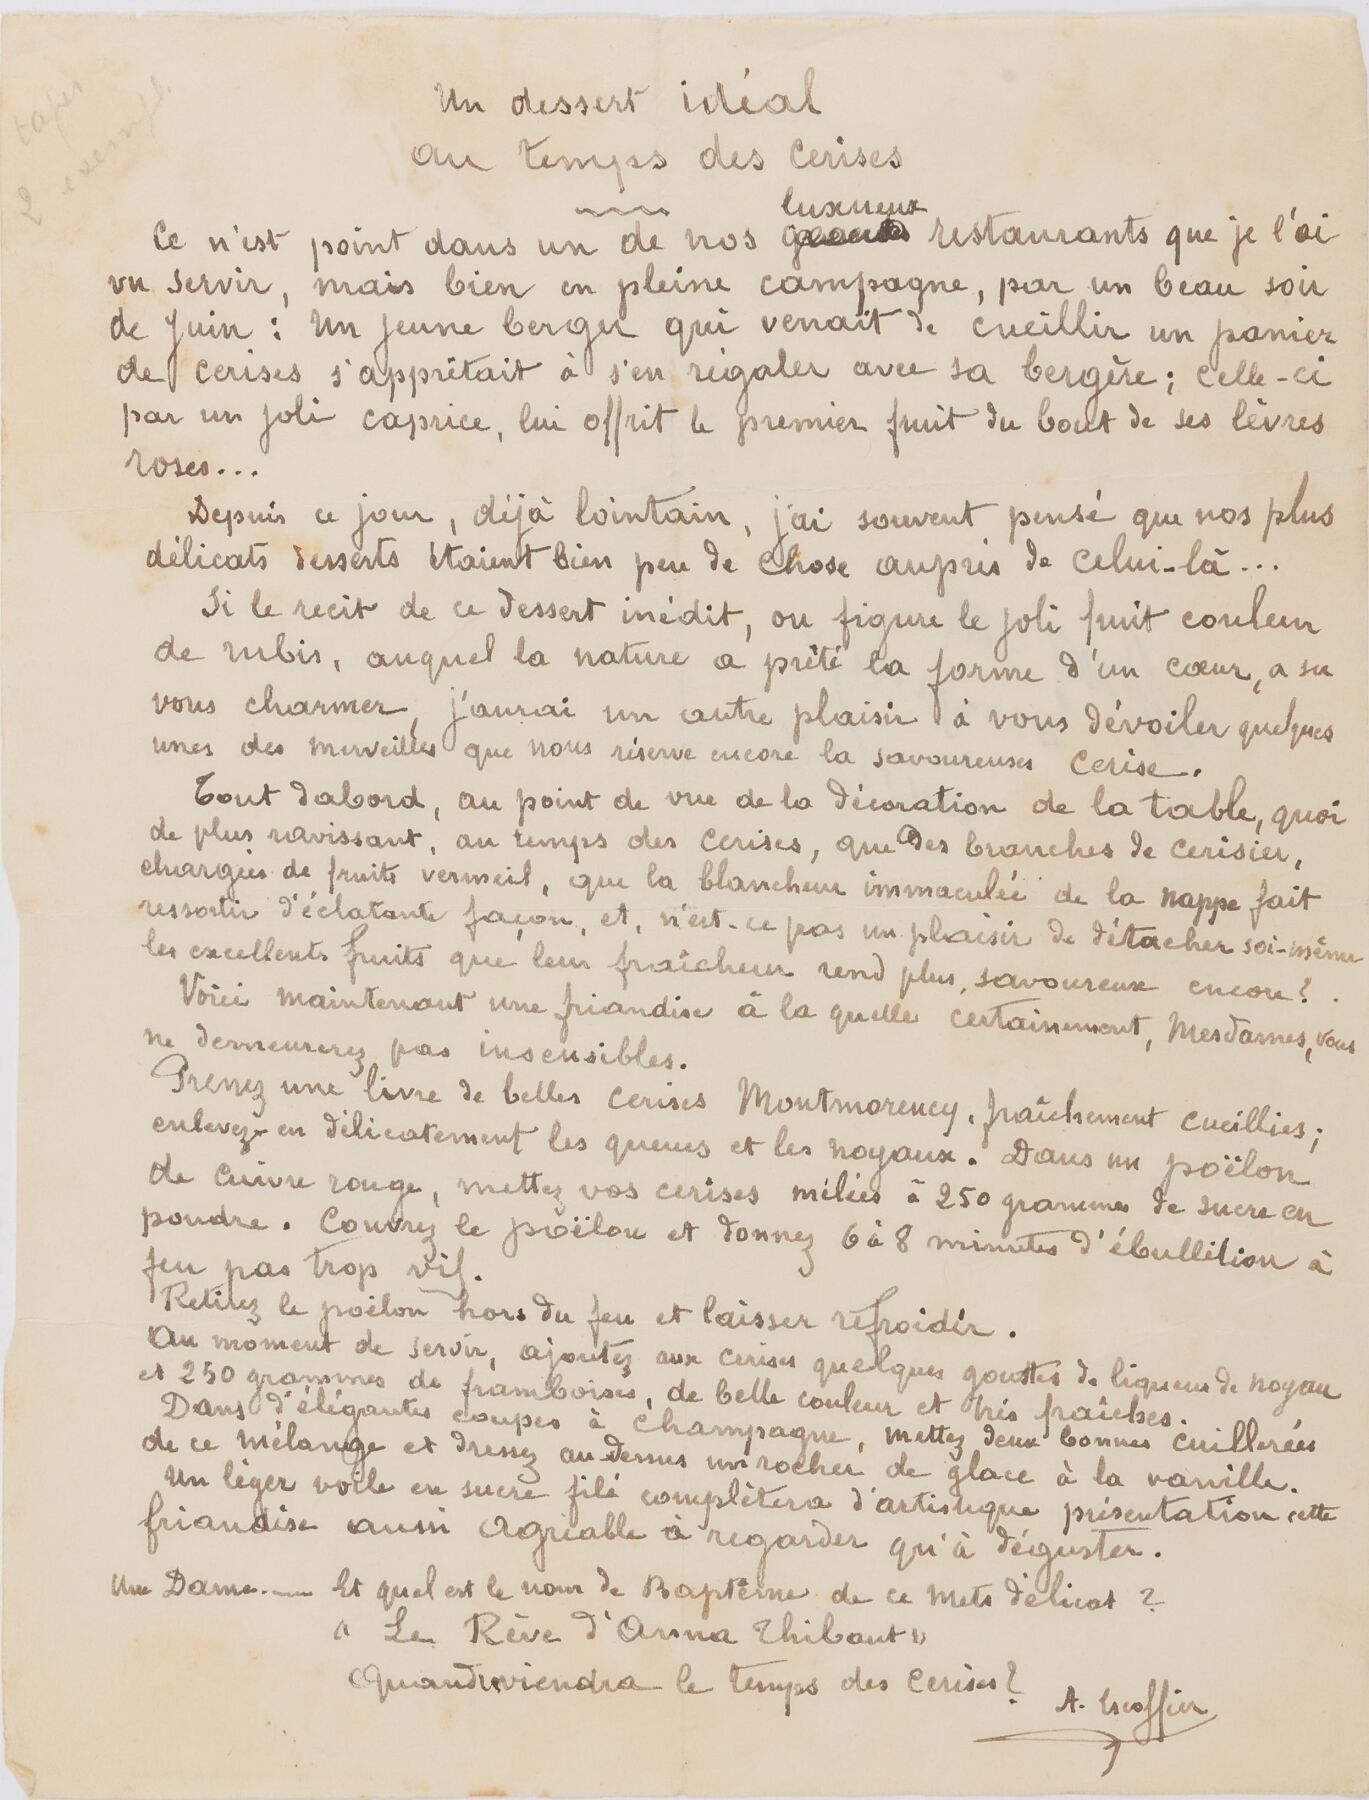 taper
2 exempl.
Un dessert idéal
au temps des cerises
luxueux
Ce n'est point dans un de nos grands restaurants que je l'ai
vu servir, mais bien en pleine campagne, par un beau soir
de Juin : Un jeune berger qui venait de cueillir un panier
de cerises s'apprêtait à s'en régaler avec sa bergère; celle-ci
par un joli caprice, lui offrit le premier fruit du bout de ses lèvres
roses...
Depuis ce jour, déjà lointain, j'ai souvent pensé que nos plus
délicats desserts étaient bien peu de chose auprès de celui-là...
Si le recit de ce dessert inédit, ou figure le joli fruit couleur
de rubis, auquel la nature a prêté la forme d'un cœur, a su
vous charmer, j'aurai un autre plaisir à vous dévoiler quelques
unes des merveilles que nous réserve encore la savoureuses cerise.
Tout dabord, au point de vue de la décoration de la table, quoi
de plus ravissant, au temps des cerises, que des branches de cerisier,
chargées de fruits vermeil, que la blancheur immaculée de la nappe fait
ressortir d'éclatante façon, et, n'est-ce pas un plaisir de détacher soi-même
les excellents fruits que leur fraîcheur rend plus savoureux encore ?
Voici maintenant une friandise à la quelle certainement, Mesdames, vous
ne demeurerez pas insensibles.
Prenez une livre de belles cerises Montmorency, fraîchement cueillies;
enlevez-en délicatement les queues et les noyaux. Dans un poëlon
de cuivre rouge, mettez vos cerises mêlées à 250 grammes de sucre en
poudre. Couvrez le poëlon et donnez 6 à 8 minutes d'ébullition à
feu pas trop vif.
Retirez le poëlon hors du feu et laisser refroidir.
Au moment de servir, ajoutez aux cerises quelques gouttes de liqueur de noyau
et 250 grammes de framboises, de belle couleur et très fraîches.
Dans d'élégantes coupes à champagne, mettez deux bonnes cuillerées
de ce mélange et dressez au-dessus un rocher de glace à la vanille.
Un léger voile en sucre filé complètera d'artistique présentation cette
friandise aussi agréable à regarder qu'à déguster.
Une Dame. — Et quel est le nom de Baptême de ce mets délicat ?
" Le Rêve d'Anna Thibaut "
Quand reviendra le temps des cerises ?
A. Escoffier